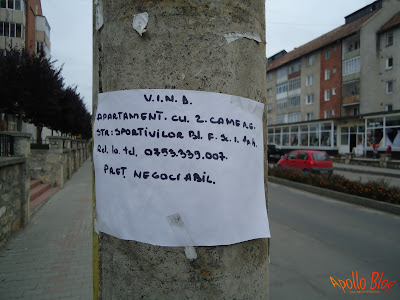 V.I.N.D.
APARTAMENT. CU. 2. CAMERE.
STR: SPORTIVILOR Bl. F. Sc. 1. Ap 4.
Rel. la. tel. 0753.339.007.
PREȚ NEGOCIABIL.
Apollo Blog